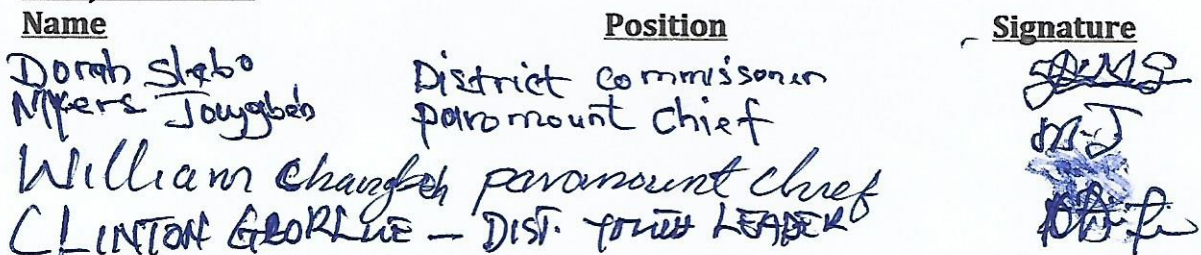 Name Position Signature
Dorah Slebo District Commissoner
Myers Jouygbeh paromount Chief M-J
William Changbeh paramount chief
CLINTON GBORLUE - DIST. YOUTH LEADER